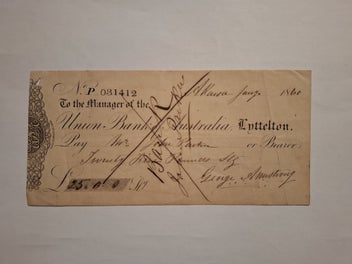 No. P 031412
Akaroa Jany 1860
To the Manager of the
Union Bank of Australia, Lyttelton.
Pay Mr John or Bearer
Twenty Five Pounds Stg
£ 25.0.0 Stg George Armstrong